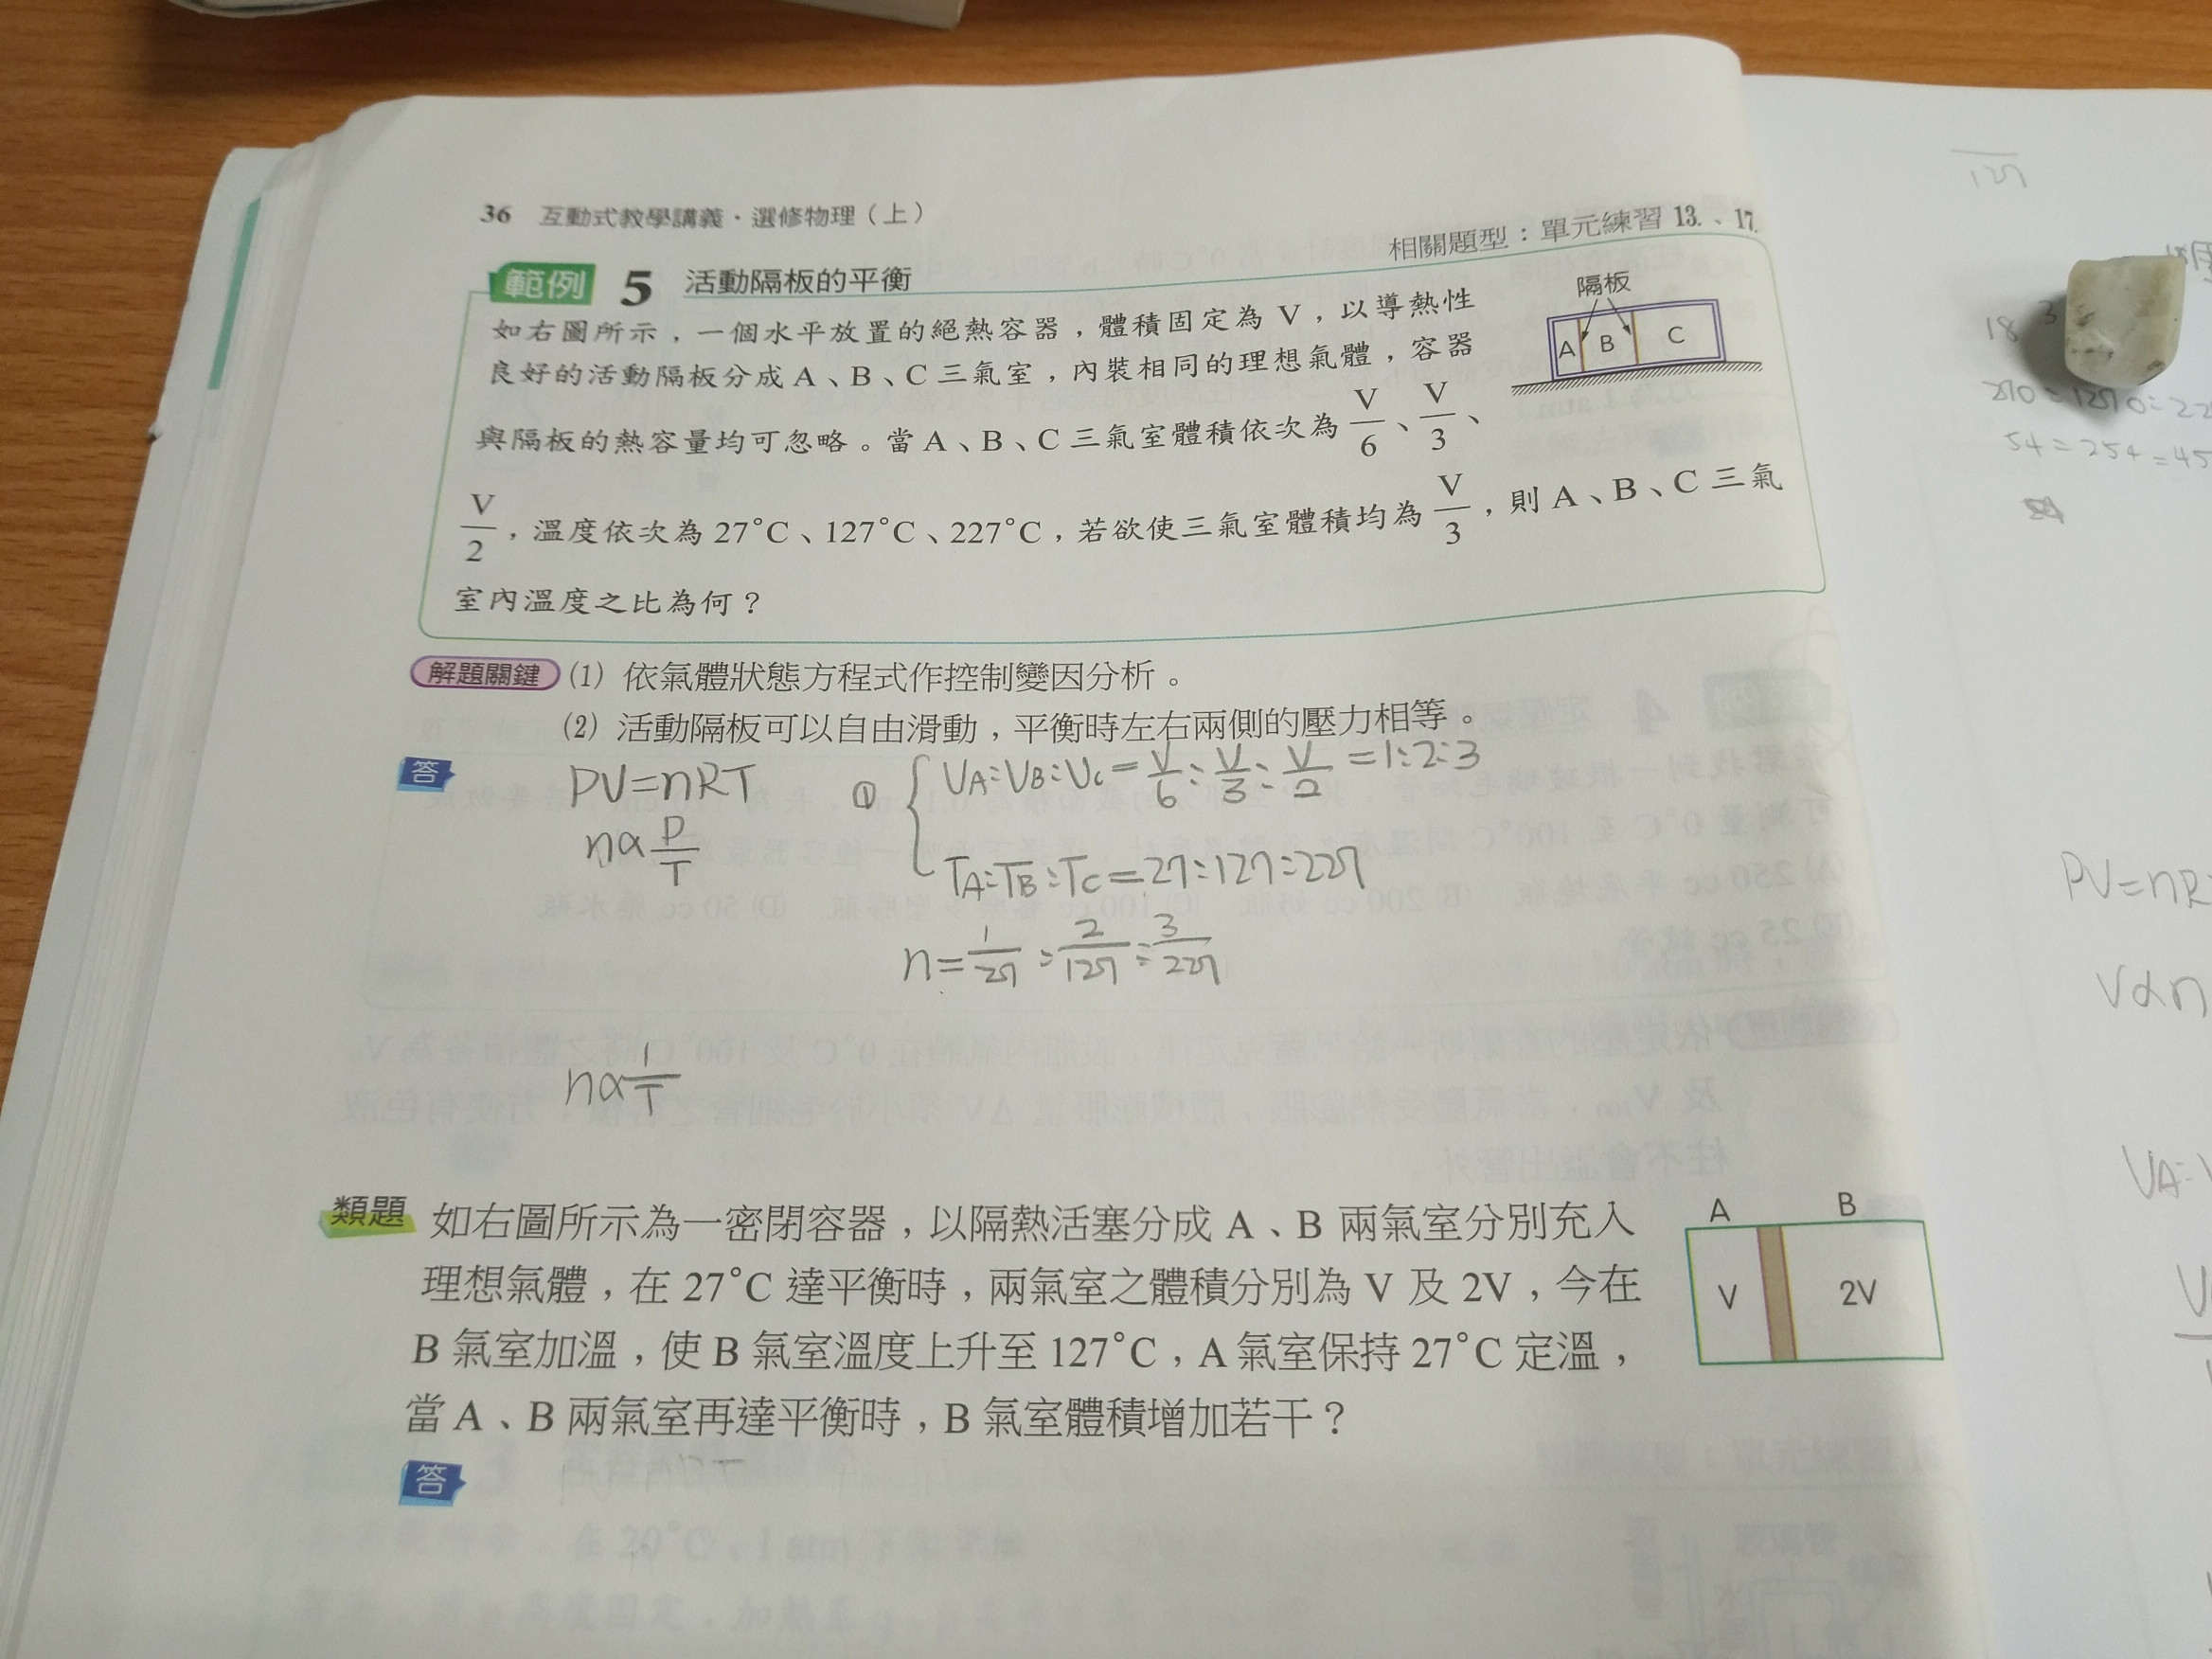 36 互動式教學講義．選修物理（上）
相關題型：單元練習 13.、17.
範例 5 活動隔板的平衡
如右圖所示，一個水平放置的絕熱容器，體積固定為 V，以導熱性
良好的活動隔板分成 A、B、C 三氣室，內裝相同的理想氣體，容器
與隔板的熱容量均可忽略。當 A、B、C 三氣室體積依次為 V/6、V/3、
V/2，溫度依次為 27°C、127°C、227°C，若欲使三氣室體積均為 V/3，則 A、B、C 三氣
室內溫度之比為何？
隔板
A B C
解題關鍵 (1) 依氣體狀態方程式作控制變因分析。
(2) 活動隔板可以自由滑動，平衡時左右兩側的壓力相等。
答
PV=nRT
n∝P/T
① VA:VB:VC=V/6:V/3:V/2=1:2:3
TA:TB:TC=27:127:227
n=1/27:2/127:3/227
n∝1/T
類題 如右圖所示為一密閉容器，以隔熱活塞分成 A、B 兩氣室分別充入
理想氣體，在 27°C 達平衡時，兩氣室之體積分別為 V 及 2V，今在
B 氣室加溫，使 B 氣室溫度上升至 127°C，A 氣室保持 27°C 定溫，
當 A、B 兩氣室再達平衡時，B 氣室體積增加若干？
A B
V 2V
答
127
18
PV=nR
V∝n
VA: